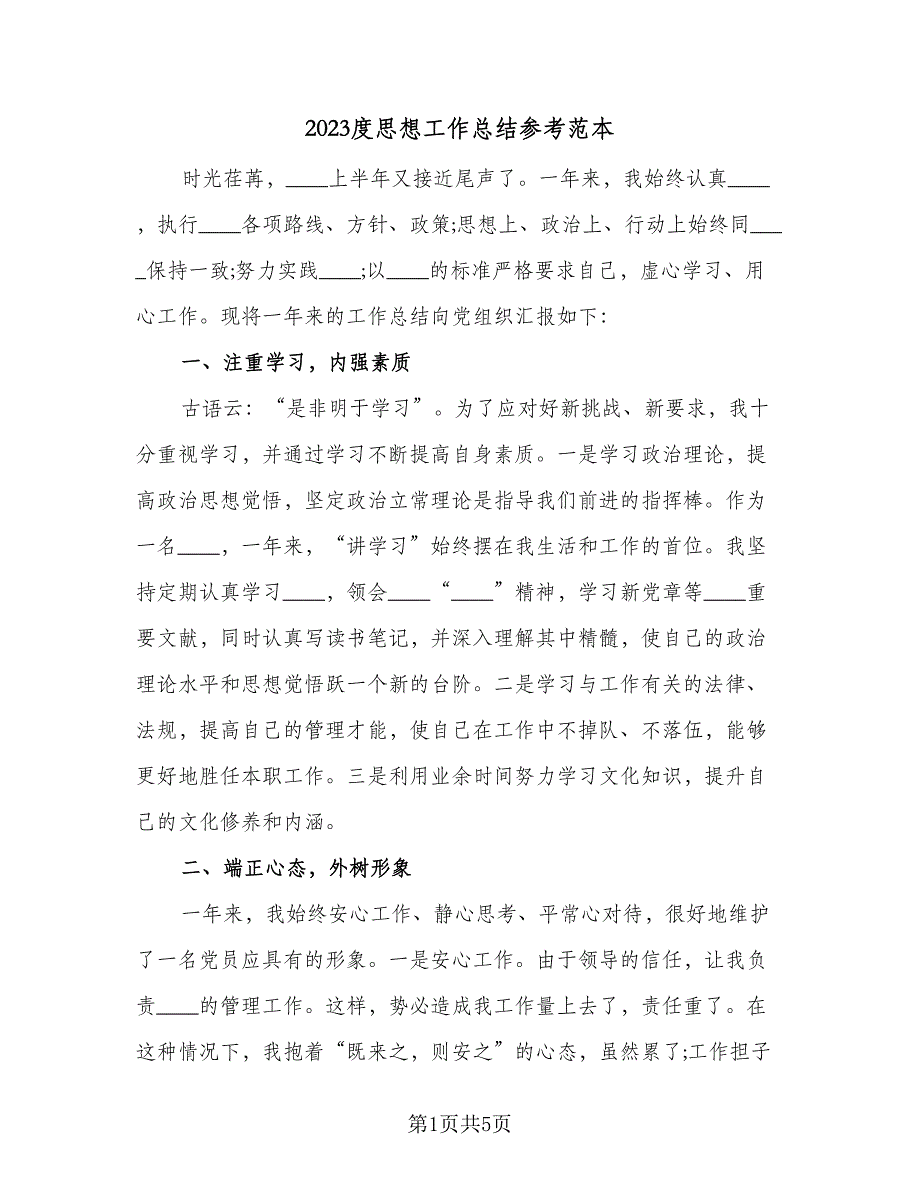 2023度思想工作总结参考范本
时光荏苒，____上半年又接近尾声了。一年来，我始终认真____
，执行____各项路线、方针、政策;思想上、政治上、行动上始终同___
_保持一致;努力实践____;以____的标准严格要求自己，虚心学习、用
心工作。现将一年来的工作总结向党组织汇报如下：
一、注重学习，内强素质
古语云：“是非明于学习”。为了应对好新挑战、新要求，我十
分重视学习，并通过学习不断提高自身素质。一是学习政治理论，提
高政治思想觉悟，坚定政治立常理论是指导我们前进的指挥棒。作为
一名____，一年来，“讲学习”始终摆在我生活和工作的首位。我坚
持定期认真学习____，领会____“____”精神，学习新党章等____重
要文献，同时认真写读书笔记，并深入理解其中精髓，使自己的政治
理论水平和思想觉悟跃一个新的台阶。二是学习与工作有关的法律、
法规，提高自己的管理才能，使自己在工作中不掉队、不落伍，能够
更好地胜任本职工作。三是利用业余时间努力学习文化知识，提升自
己的文化修养和内涵。
二、端正心态，外树形象
一年来，我始终安心工作、静心思考、平常心对待，很好地维护
了一名党员应具有的形象。一是安心工作。由于领导的信任，让我负
责____的管理工作。这样，势必造成我工作量上去了，责任重了。在
这种情况下，我抱着“既来之，则安之”的心态，虽然累了;工作担子
第1页共5页